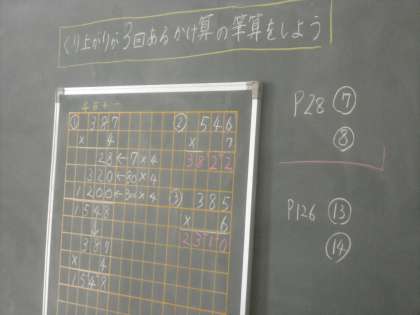 くり上がりが3回あるかけ算の筆算をしよう
① 387
× 4
28←7×4
320←80×4
1200←300×4
1548
↓
387
× 4
1548
② 546
× 7
3822
③ 385
× 6
2310
P28 ⑦
⑧
P126 ⑬
⑭